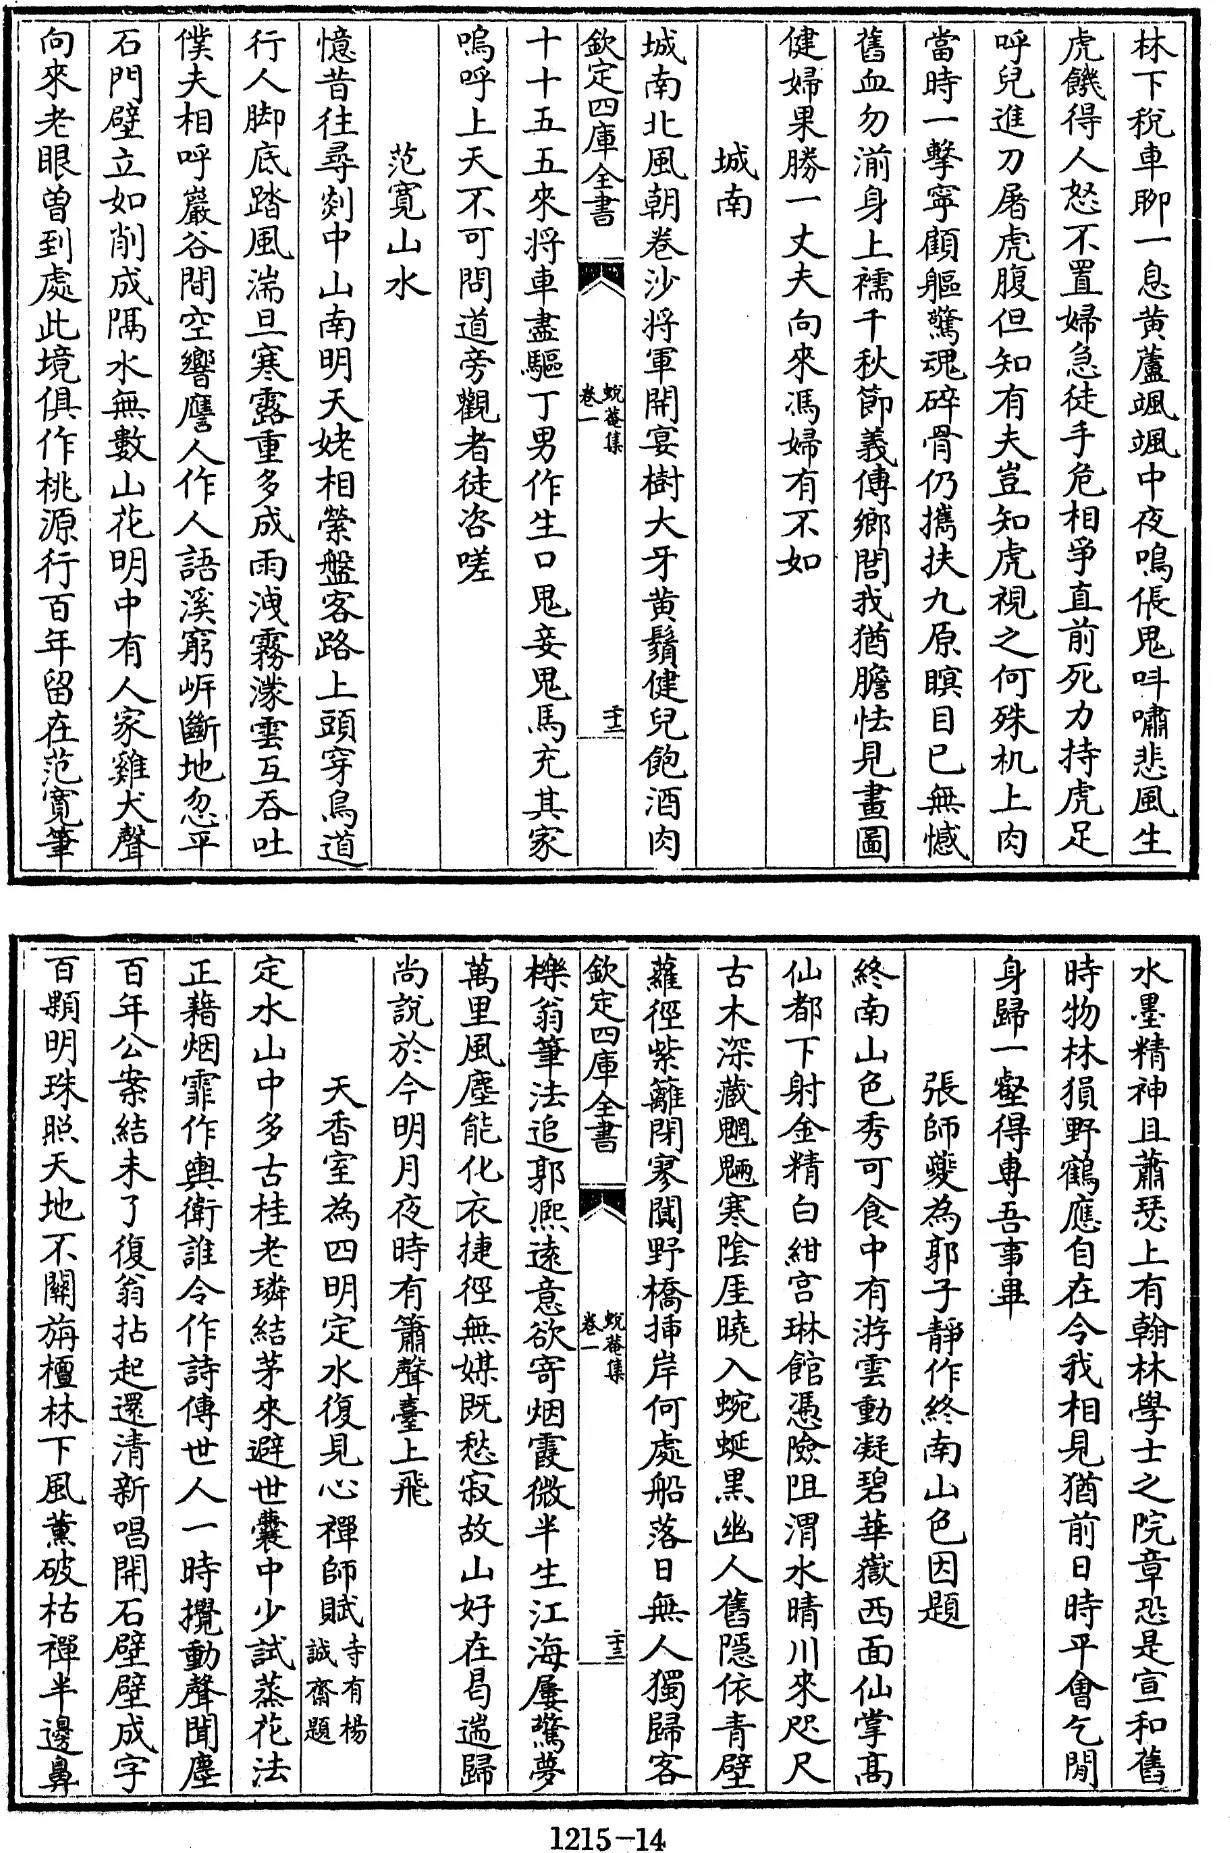 林下稅車聊一息黄蘆颯颯中夜鳴倀鬼呌嘯悲風生
虎饑得人怒不置婦急徒手危相爭直前死力持虎足
呼兒進刀屠虎腹但知有夫豈知虎視之何殊机上肉
當時一擊寧顧軀驚魂碎骨仍攜扶九原瞑目已無憾
舊血勿湔身上襦千秋節義傳鄉閭我猶膽怯見畫圖
健婦果勝一丈夫向來馮婦有不如
城南
城南北風朝卷沙將軍開宴樹大牙黄鬚健兒飽酒肉
欽定四庫全書
蛻菴集
卷一
二十二
十十五五來將車盡驅丁男作生口鬼妾鬼馬充其家
嗚呼上天不可問道旁觀者徒咨嗟
范寛山水
憶昔往尋剡中山南明天姥相縈盤客路上頭穿鳥道
行人脚底踏風湍旦寒露重多成雨洩霧濛雲互吞吐
僕夫相呼巖谷間空響譍人作人語溪窮岍斷地忽平
石門壁立如削成隔水無數山花明中有人家雞犬聲
向來老眼曾到處此境俱作桃源行百年留在范寛筆
水墨精神且蕭瑟上有翰林學士之院章恐是宣和舊
時物林猿野鶴應自在令我相見猶前日時平會乞閒
身歸一壑得專吾事畢
張師夔為郭子靜作終南山色因題
終南山色秀可食中有游雲動凝碧華嶽西面仙掌高
仙都下射金精白紺宫琳館憑險阻渭水晴川來咫尺
古木深藏魍魎寒陰厓曉入蜿蜒黒幽人舊隱依青壁
蘿徑紫籬閉寥闃野橋揷岸何處船落日無人獨歸客
欽定四庫全書
蛻菴集
卷一
二十三
櫟翁筆法追郭熙遠意欲寄烟霞微半生江海屢驚夢
萬里風塵能化衣捷徑無媒既愁寂故山好在曷遄歸
尚說於今明月夜時有簫聲臺上飛
天香室為四明定水復見心禪師賦寺有楊誠齋題
定水山中多古桂老璘結茅來避世囊中少試蒸花法
正藉烟霏作輿衛誰令作詩傳世人一時攪動聲聞塵
百年公案結未了復翁拈起還清新唱開石壁壁成字
百顆明珠照天地不關旃檀林下風薰破枯禪半邊鼻
1215-14